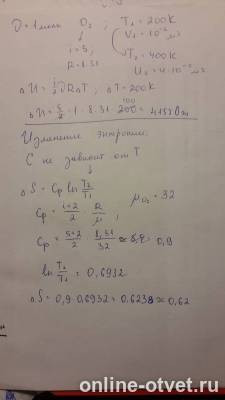 ν = 1 моль O₂ T₁ = 200 К
↓ V₁ = 10⁻² м³
i = 5; T₂ = 400 К
R = 8.31 V₂ = 4·10⁻² м³
ΔU = i/2 νRΔT; ΔT = 200К
ΔU = 5/2 · 1 · 8.31 · 200 = 4155 Дж
100
Изменение энтропии:
C не зависит от T
↓
ΔS = Cp ln T₂/T₁
Cp = (i+2)/2 · R/μ, μO₂ = 32
Cp = (5+2)/2 · 8,31/32 ≈ 0,9
ln T₂/T₁ = 0,6932
ΔS = 0,9·0,6932 = 0,6238 ≈ 0,62
online-otvet.ru